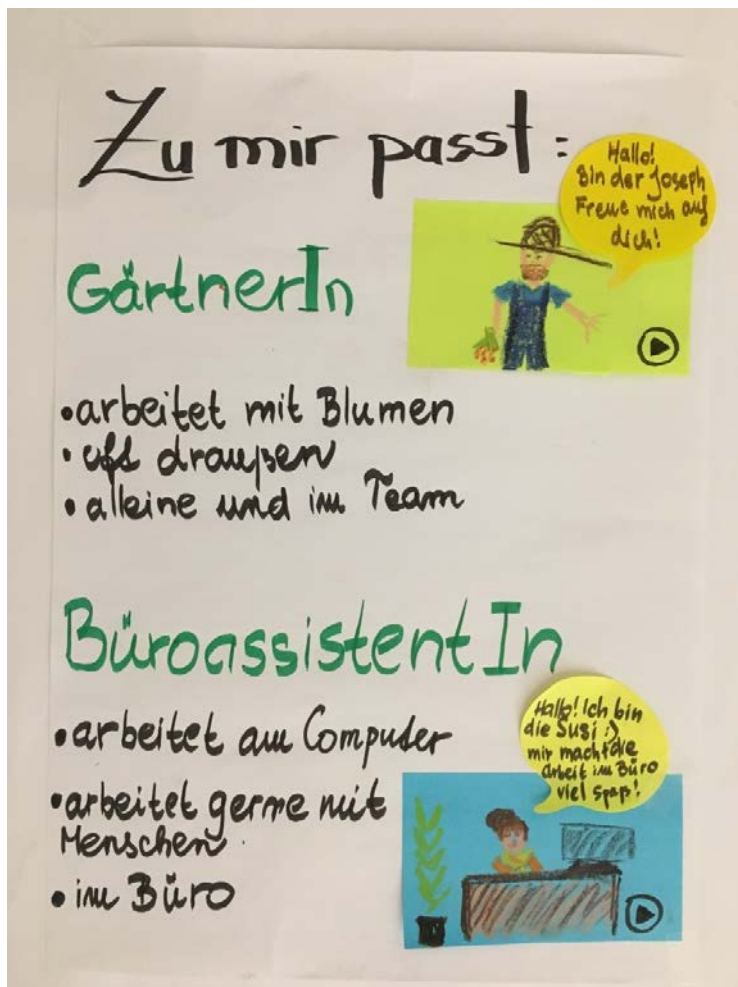 Zu mir passt:
Hallo!
Bin der Joseph
Freue mich auf
dich!
GärtnerIn
• arbeitet mit Blumen
• oft draußen
• alleine und im Team
BüroassistentIn
Hallo! Ich bin
die Susi :)
mir macht die
Arbeit im Büro
viel Spaß!
• arbeitet am Computer
• arbeitet gerne mit
Menschen
• im Büro